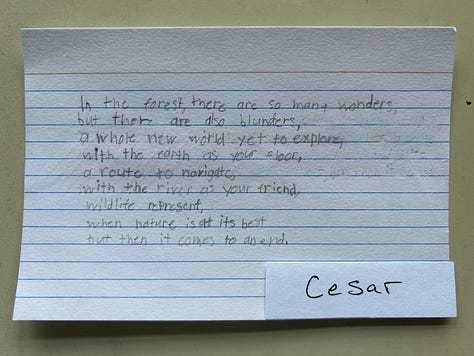 In the forest, there are so many wonders,
but there are also blunders,
a whole new world yet to explore,
with the earth as your floor,
a route to navigate,
with the river as your friend,
wildlife represent,
when nature is at its best
but then it comes to an end.
Cesar